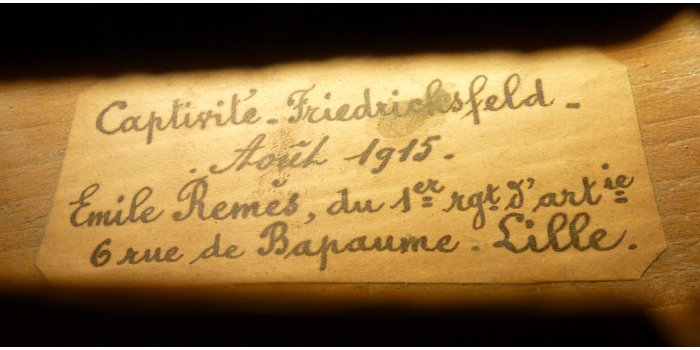 Captivité - Friedrichsfeld -
Août 1915.
Emile Remés, du 1er rgt d'artie
6 rue de Bapaume - Lille.